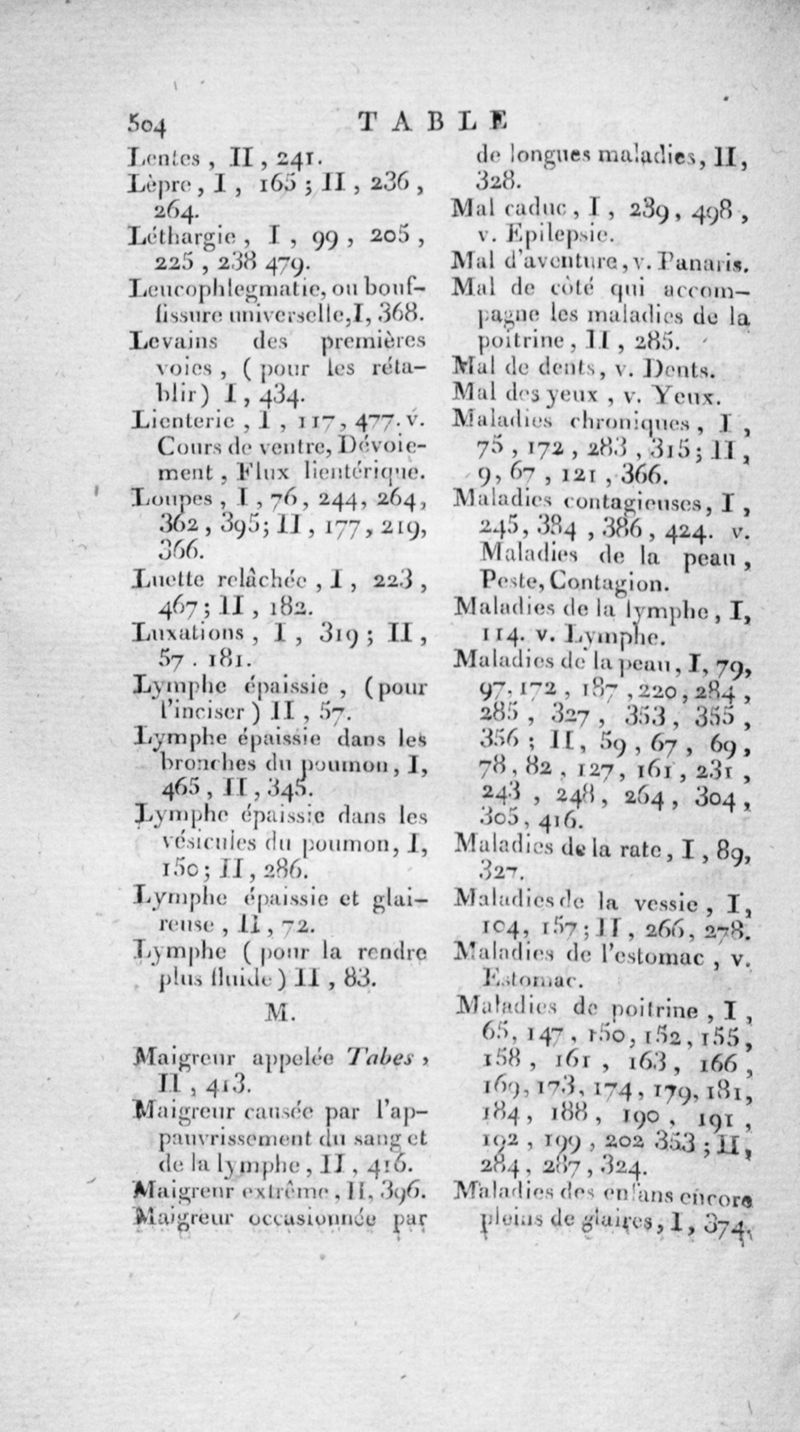 504
TABLE
Lentes , II , 241.
Lèpre , I , 165 ; II , 236 ,
264.
Léthargie , I , 99 , 205 ,
225 , 238 479.
Leucophlegmatie, ou bouf-
fissure universelle, I, 368.
Levains des premières
voies , ( pour les réta-
blir) I , 434.
Lienterie , I , 117, 477. v.
Cours de ventre, Dévoie-
ment , Flux lientérique.
Loupes , I , 76, 244, 264,
362 , 395; II , 177, 219,
366.
Luette relâchée , I , 223 ,
467; II , 182.
Luxations , I , 319 ; II ,
57 . 181.
Lymphe épaissie , (pour
l'inciser ) II , 57.
Lymphe épaissie dans les
bronches du poumon , I,
465 , II , 345.
Lymphe épaissie dans les
vésicules du poumon, I,
150; II , 286.
Lymphe épaissie et glai-
reuse , II , 72.
Lymphe ( pour la rendre
plus fluide ) II , 83.
M.
Maigreur appelée Tabes ,
II , 413.
Maigreur causée par l'ap-
pauvrissement du sang et
de la lymphe , II , 416.
Maigreur extrême , II, 396.
Maigreur occasionnée par
de longues maladies, II,
328.
Mal caduc , I , 289, 498 ,
v. Epilepsie.
Mal d'aventure, v. Panaris.
Mal de côté qui accom-
pagne les maladies de la
poitrine , II , 285.
Mal de dents, v. Dents.
Mal des yeux , v. Yeux.
Maladies chroniques , I ,
75 , 172 , 283 , 315; II ,
9, 67 , 121 , 366.
Maladies contagieuses, I ,
245, 384 , 386, 424. v.
Maladies de la peau ,
Peste, Contagion.
Maladies de la lymphe , I,
114. v. Lymphe.
Maladies de la peau, I, 79,
97, 172 , 187 , 220, 284 ,
285 , 327 , 353, 355 ,
356 ; II, 59 , 67 , 69,
78, 82 , 127, 161 , 231 ,
243 , 248, 264, 304,
305, 416.
Maladies de la rate, I , 89,
327.
Maladies de la vessie , I,
104, 157; II , 266, 278.
Maladies de l'estomac , v.
Estomac.
Maladies de poitrine , I ,
65, 147 , 150, 152, 155,
158 , 161 , 163 , 166 ,
169, 173, 174 , 179, 181,
184 , 188 , 190 , 191 ,
192 , 199 , 202 353 ; II,
284, 287 , 324.
Maladies des enfans encore
pleins de glaires, I, 374,